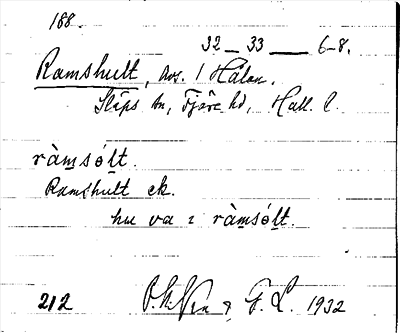 188.
32 — 33 — 6-8.
Ramshult, Avs. 1 Hålan.
Släps sn, Fjäre hd, Hall. l.
ràmsólt.
Ramshult ek.
hu va ı ràmsólt.
212 G. L. 1932